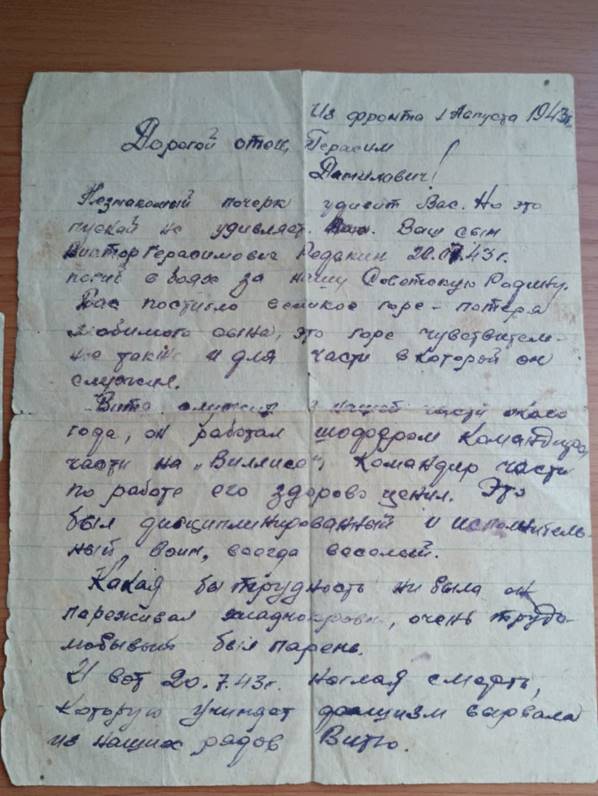 Из фронта 1 Августа 1943г.
Дорогой отец, Герасим
Данилович!
Незнакомый почерк удивит Вас. Но это
пускай не удивляет. Ваш сын
Виктор Герасимович Редакин 20.07.43г.
погиб в боях за нашу Советскую Родину.
Вас постигло великое горе - потеря
любимого сына, это горе чувствитель-
но также и для части в которой он
служил.
Витя служил в нашей части около
года, он работал шофером командира
части на „Виллисе", командир части
по работе его здорово ценил. Это
был дисциплинированный и исполнитель-
ный воин, всегда веселый.
Какая бы трудность ни была он
переживал хладнокровно, очень трудо-
любивый был парень.
И вот 20.7.43г. наглая смерть,
которую учиняет фашизм вырвала
из наших рядов Витю.